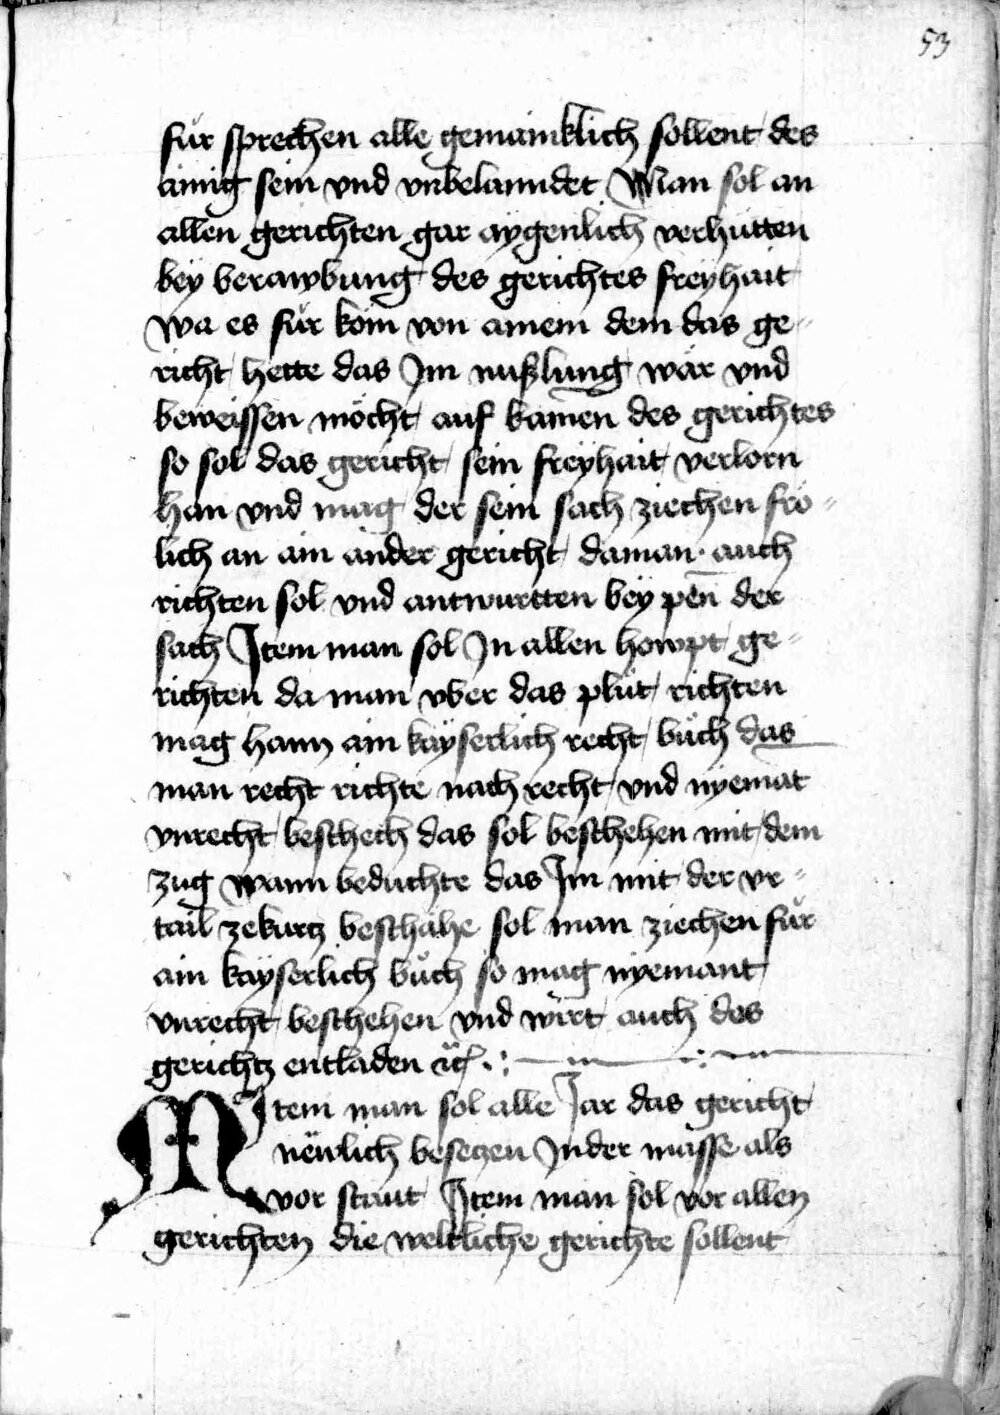 53
für sprechen alle gemainklich sollent des
ainig sein vnd vnbelanndet Man sol an
allen gerichten gar aygenlich verhütten
bey berawbung des gerichtes freyhait
wa es für kom von ainem dem das ge-
richt hette das Im mißlung wär vnd
beweissen möcht auf kainen des gerichtes
so sol das gericht sein freyhait verlorn
han vnd mag der sein sach ziechen frö-
lich an ain ander gericht daman auch
richten sol vnd antwurtten bey pen̄ der
sach Item man sol In allen howpt ge-
richten da man vber das plůt richten
mag hann ain käyserlich recht bůch das
man recht richte nach recht vnd nyemat
vnrecht beschech das sol beschehen mit dem
zug wann beduchte das Im mit der vr-
tail zekurtz beschähe sol man ziechen für
ain käyserlich bůch so mag nyemant
vnrecht beschehen vnd wirt auch des
gerichtz entladen
Item man sol alle Jar das gericht
newlich besetzen Inder masse als
vor staut Item man sol vor allen
gerichten die weltliche gerichte sollent